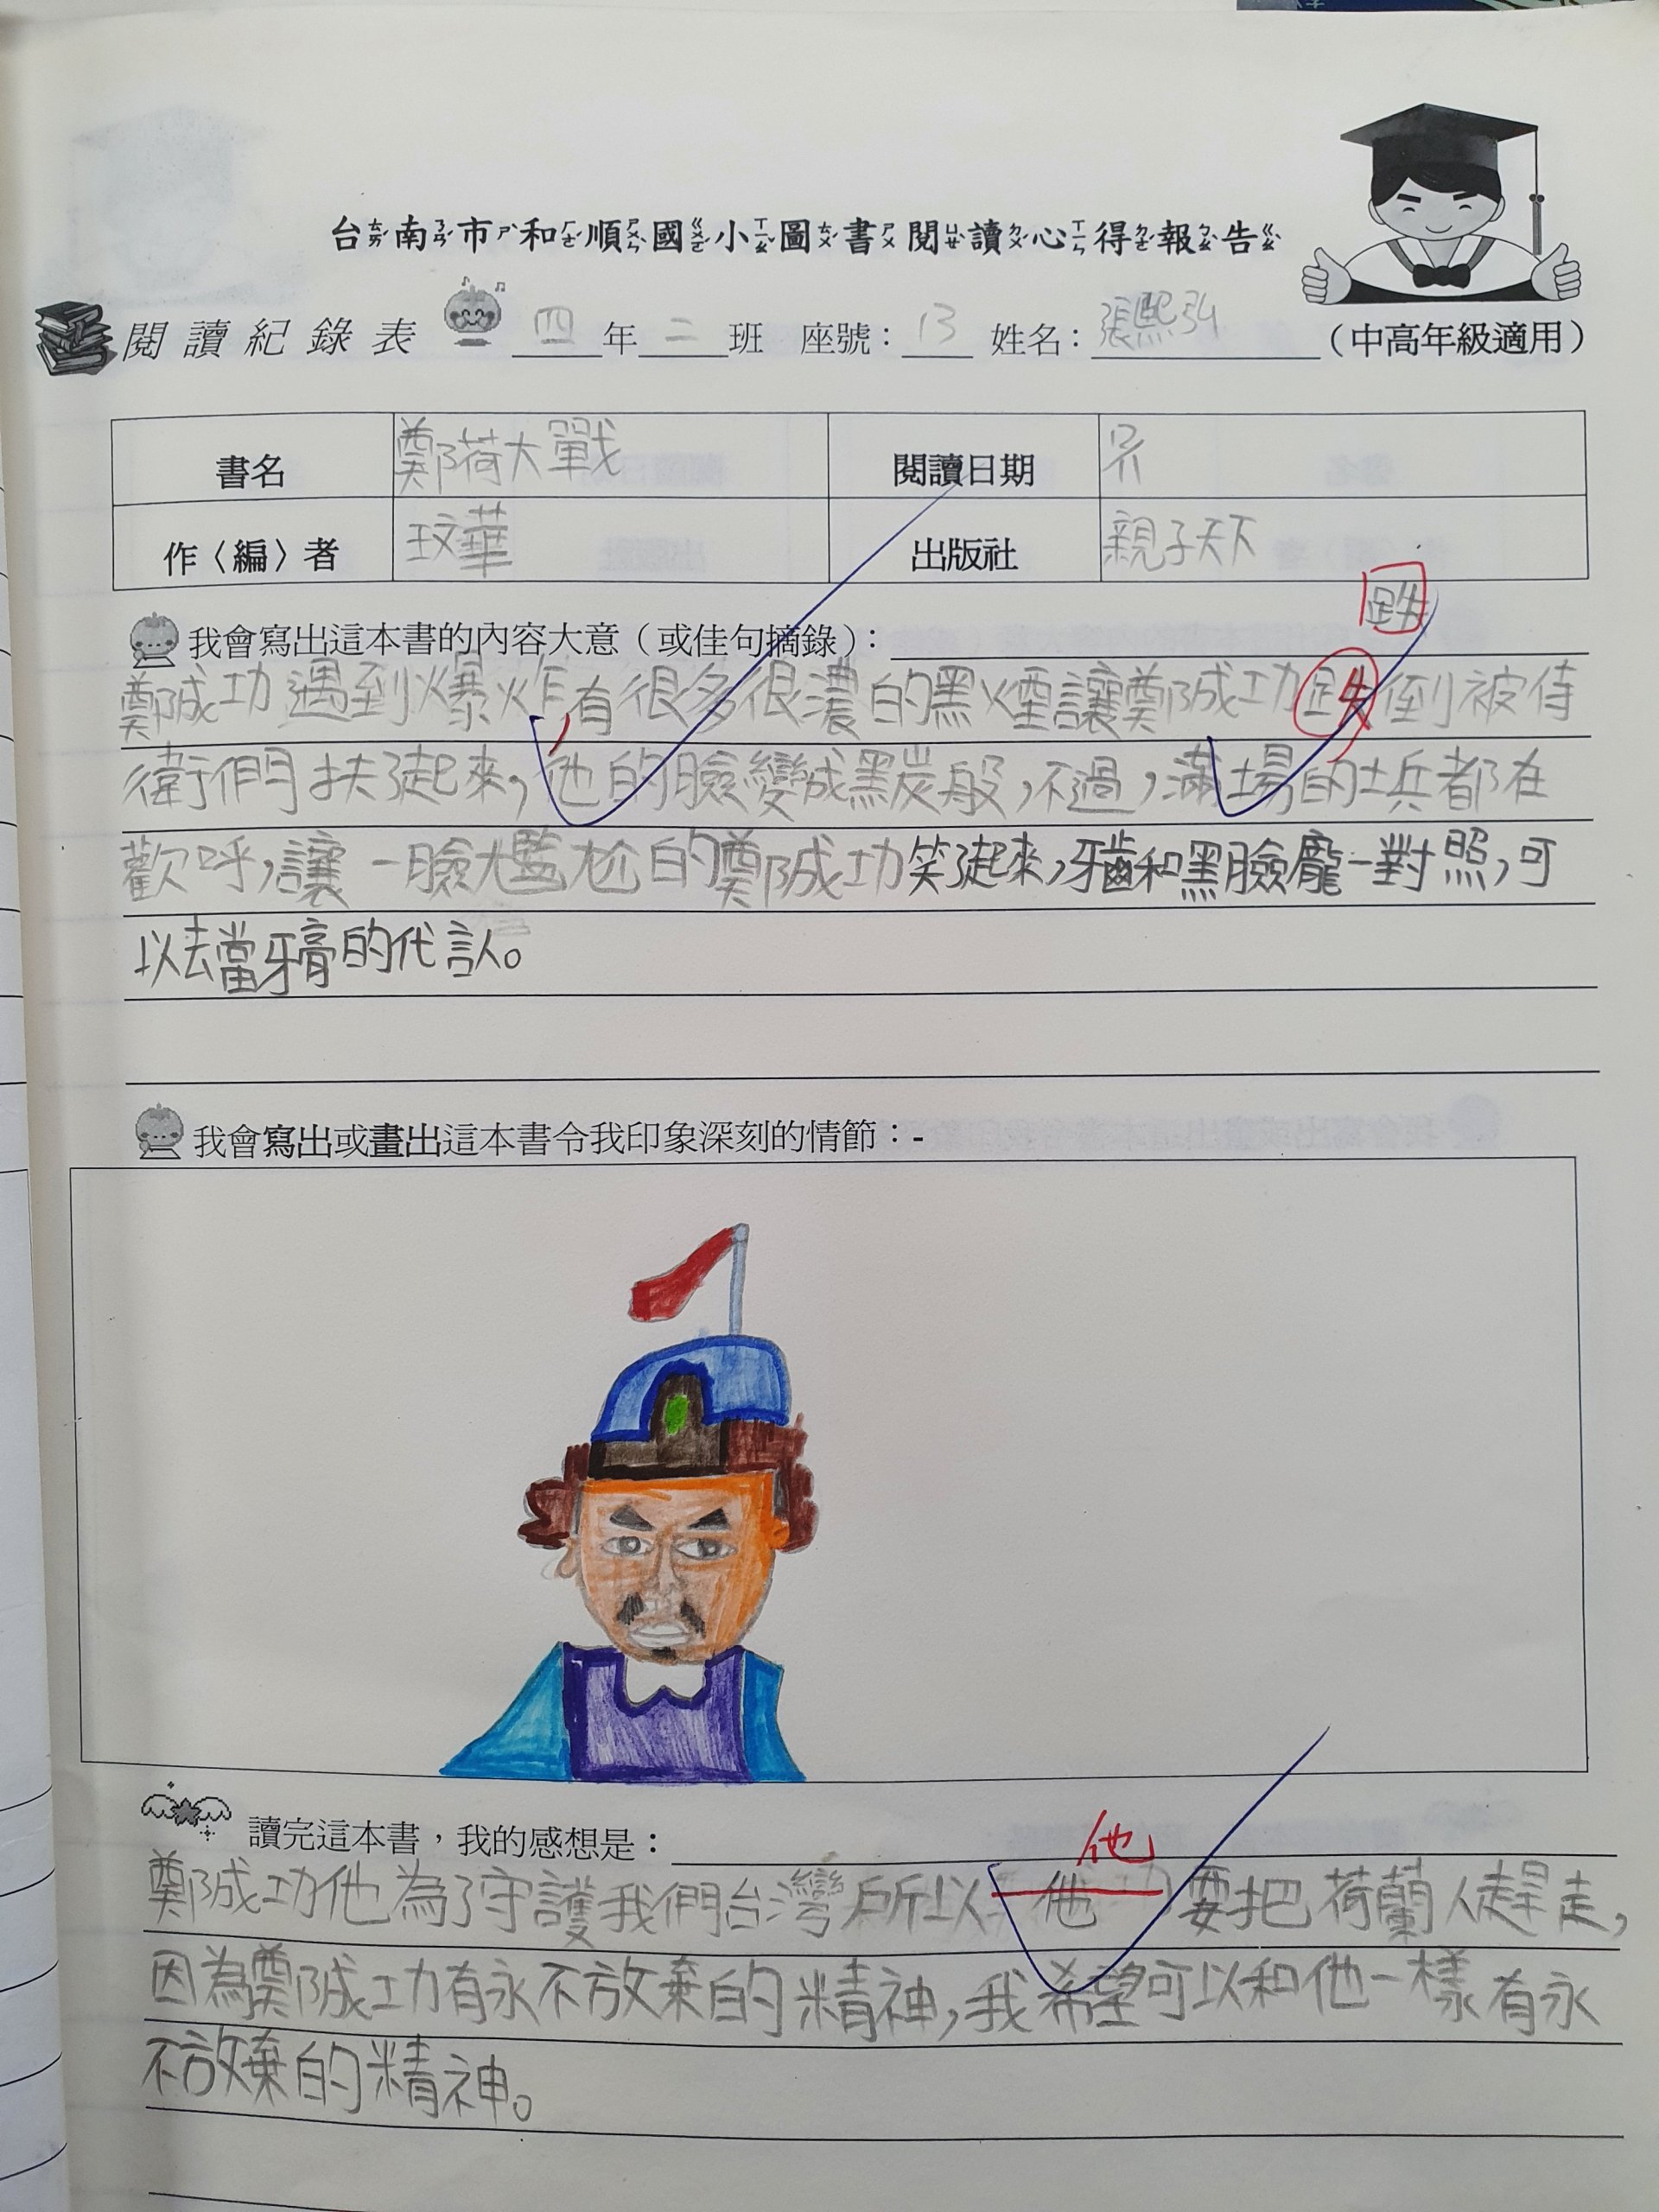 台南市和順國小圖書閱讀心得報告
閱讀紀錄表 四年二班 座號：13 姓名：張熙弘 （中高年級適用）
書名 鄭荷大戰 閱讀日期
作〈編〉者 王文華 出版社 親子天下
跌
我會寫出這本書的內容大意（或佳句摘錄）：
鄭成功遇到爆炸,有很多很濃的黑煙讓鄭成功跌倒被侍
衛們扶了起來,他的臉變成黑炭般,不過,滿場的士兵都在
歡呼,讓一臉尷尬的鄭成功笑了起來,牙齒和黑臉龐一對照,可
以去當牙膏的代言人。
我會寫出或畫出這本書令我印象深刻的情節：-
讀完這本書，我的感想是：
他
鄭成功他為了守護我們台灣所以他要把荷蘭人趕走,
因為鄭成功有永不放棄的精神,我希望可以和他一樣有永
不放棄的精神。